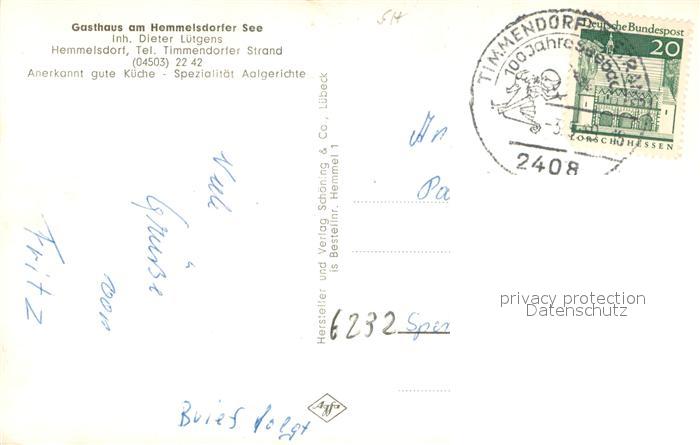 Gasthaus am Hemmelsdorfer See
Inh. Dieter Lütgens
Hemmelsdorf, Tel. Timmendorfer Strand
(04503) 22 42
Anerkannt gute Küche - Spezialität Aalgerichte
SH
Viele
Grüße
von
Fritz
Brief folgt
Hersteller und Verlag Schöning & Co., Lübeck
is Bestellnr. Hemmel 1
Agfa
TIMMENDORFER STRAND
100 Jahre Seebad
2408
Deutsche Bundespost
20
LORSCH/HESSEN
An
Pa
6232 Spen
privacy protection
Datenschutz